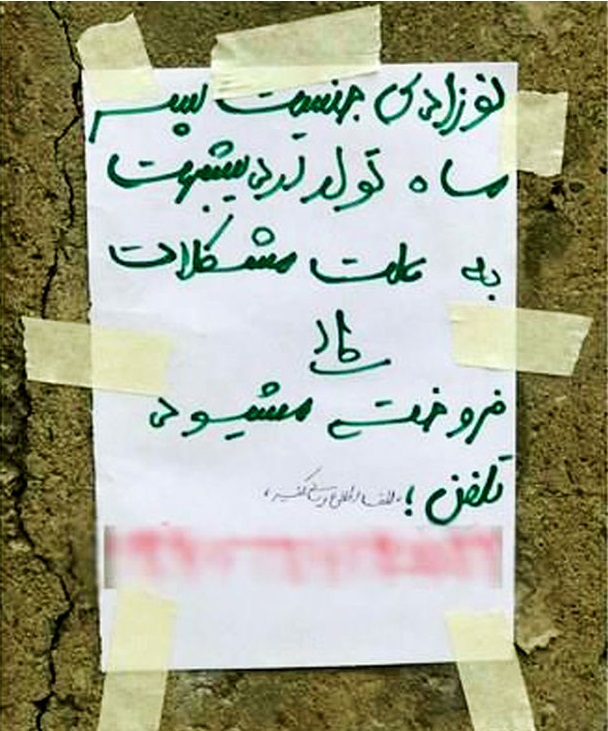 نوزادی جنسیت پسر
ماه تولد اردیبشهت
به علت مشکلات
فروخته میشود
تلفن : لطفا اطلاع رسانی کنید